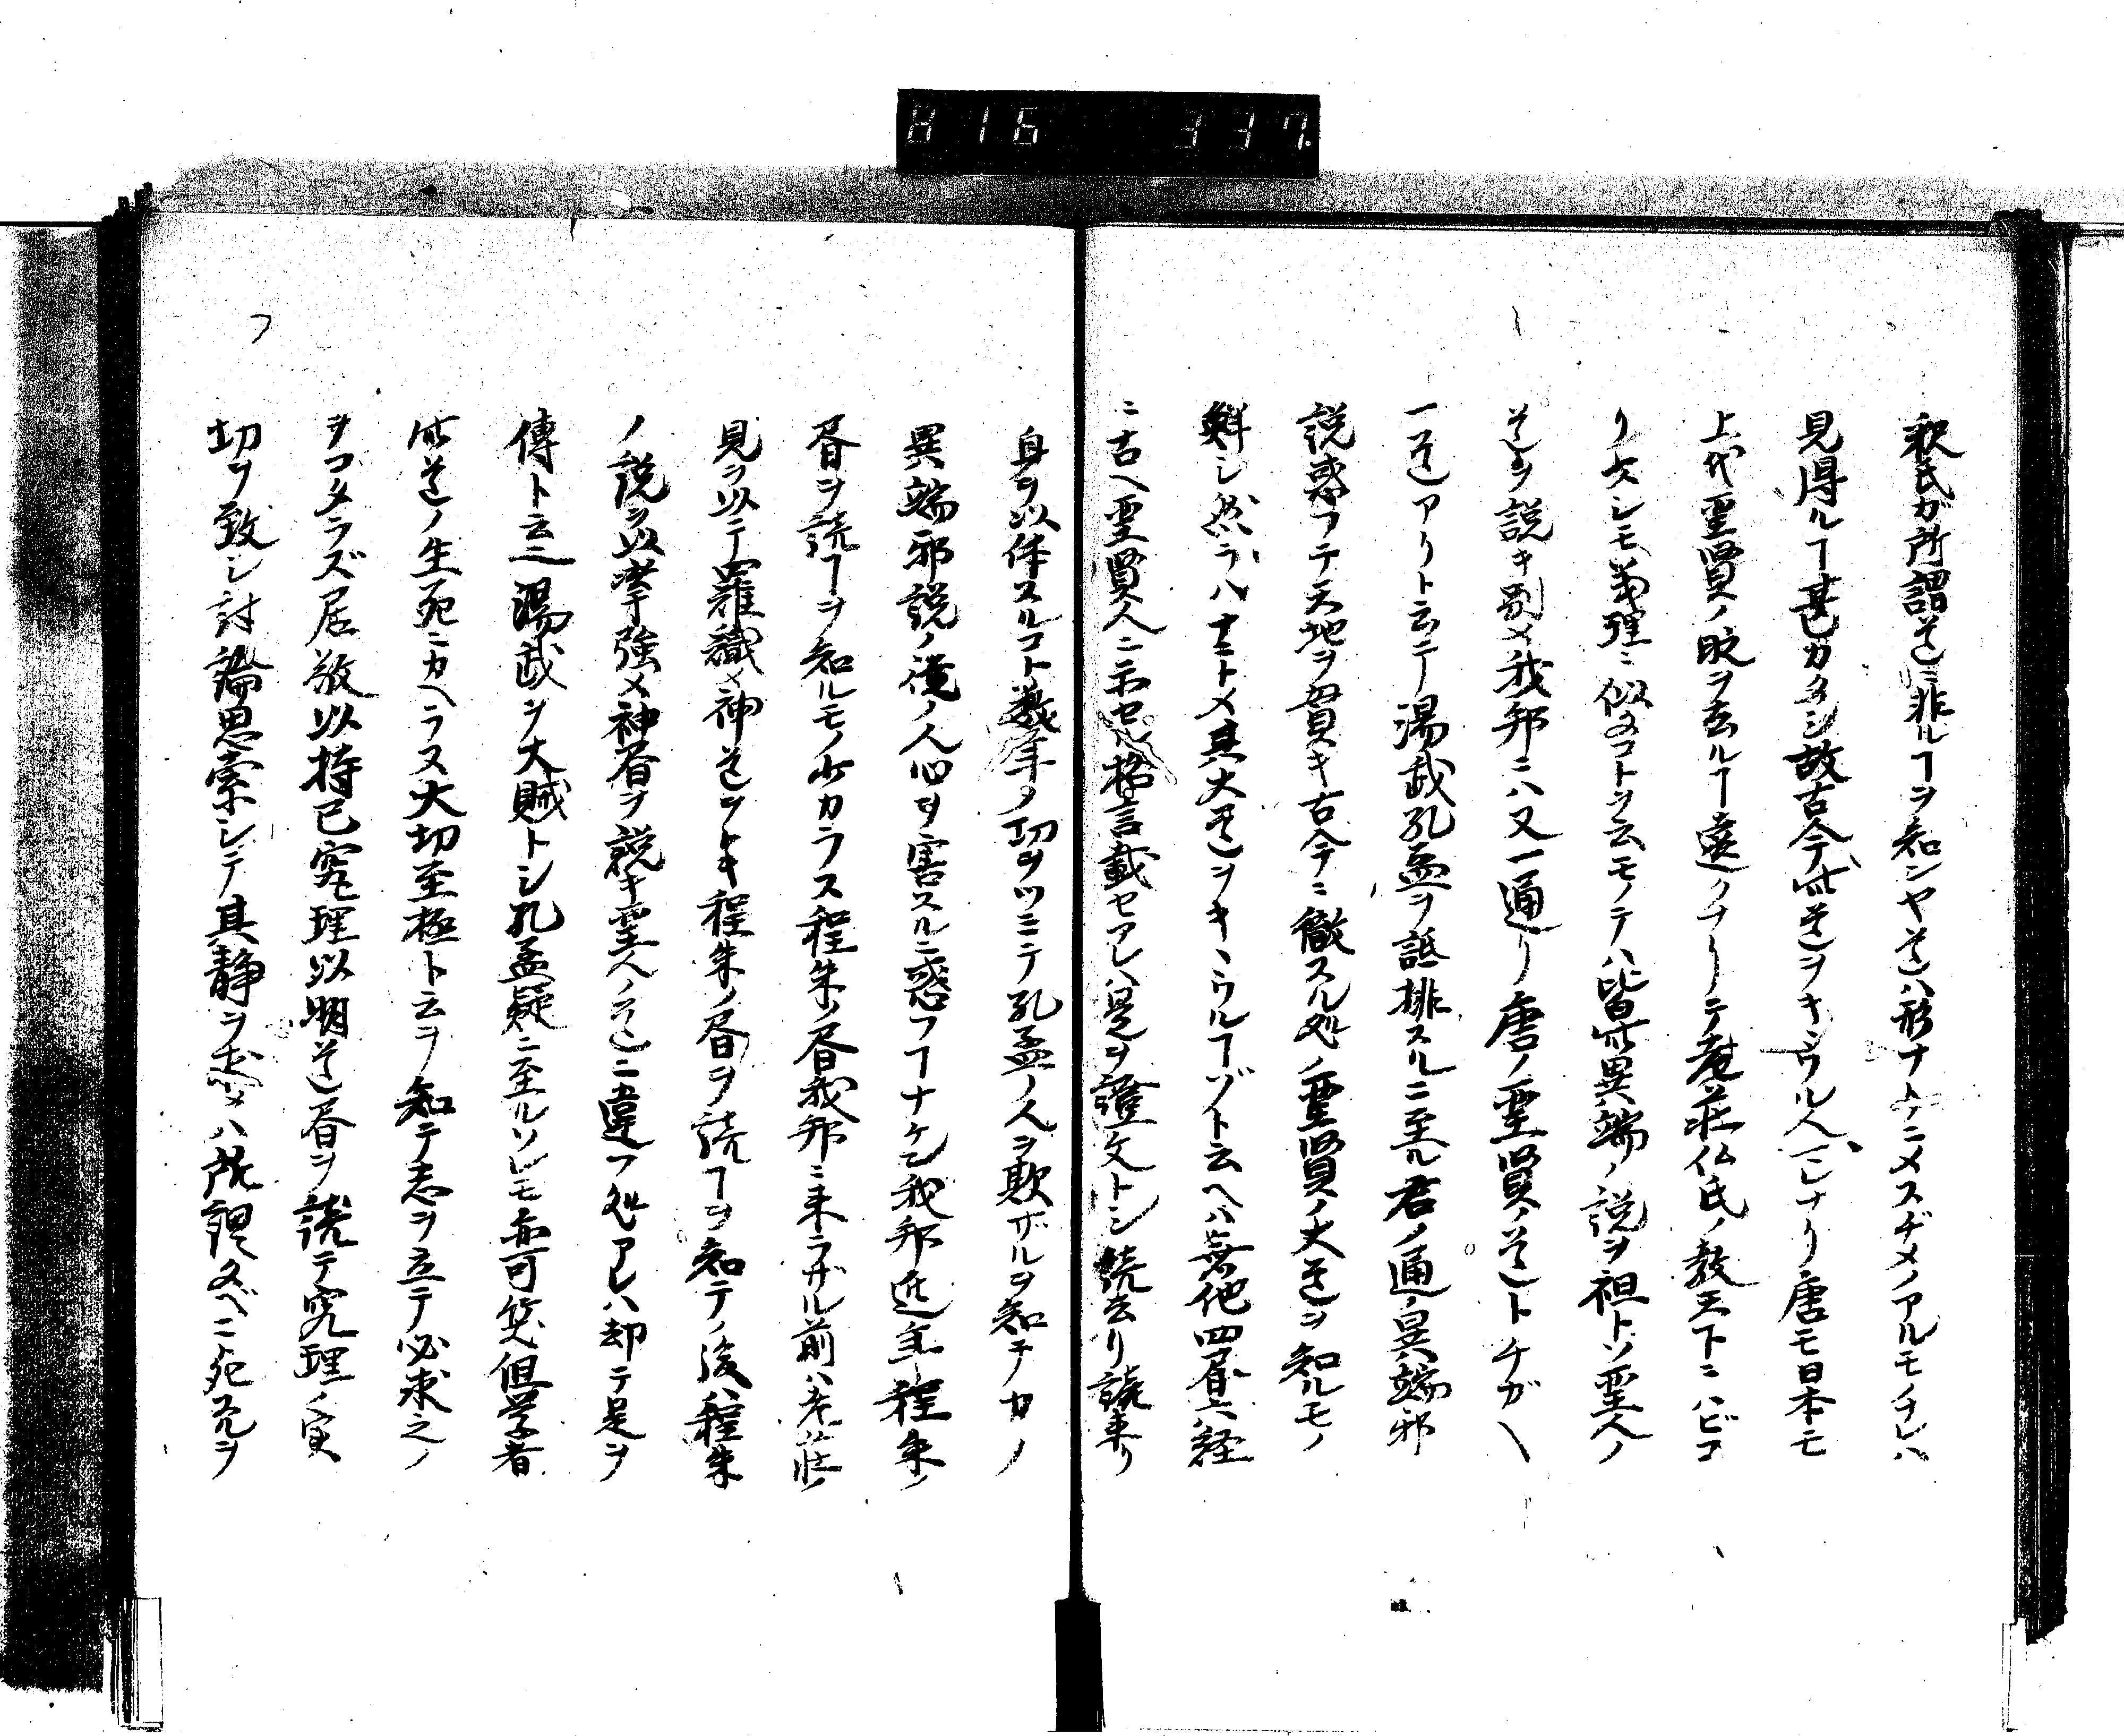 816 337
釈氏ガ所謂道ニ非ルヿヲ知ンヤ道ハ形ナトニメスヂメノアルモチレハ
見得ルヿ甚已カタシ故古今此道ヲキヽウル人マレナリ唐モ日本モ
上代聖賢ノ時ヲ去ルヿ遠クナリテ老荘仏氏ノ教天下ニハビコ
リ欠シモ義理ニ似タコトヲ云モノテハ皆此異端ノ説ヲ祖トソ聖人ノ
道ヲ説キ別メ我邦ニハ又一通リ唐ノ聖賢ノ道トチガヘ
一道アリト云テ湯武孔孟ヲ詆排スルニ至ル君ノ通ノ異端邪
説惑フテ天地ヲ貫キ古今ニ徹スル処ノ聖賢ノ大道ヲ知ルモノ
鮮シ然ラハ ヿトメ其大道ヲキヽウルヿゾト云ヘハ無他四書六経
ニ古ヘ聖賢人ニ示セル格言載セアレハ是ヲ證文トシ読去リ読来リ
身ヲ以体スルコト数年ノ功ヲツミテ孔孟ノ人ヲ欺ザルヲ知テカノ
異端邪説ノ後ノ人心ヲ害スルニ惑フヿナケレ我邦近年程朱ノ
書ヲ読ヿヲ知ルモノ少カラス程朱ノ書我邦ニ来ラザル前ハ老荘ノ
見ヲ以テ羅織メ神道ヲトキ程朱ノ書ヲ読ヿヲ知テノ後ハ程朱
ノ説ヲ以牽強メ神書ヲ説キ聖人ノ道ニ違フ処アレハ却テ是ヲ
傳ト云ニ湯武ヲ大賊トシ孔孟疑ニ至ルソレモ亦可笑但学者
此道ノ生死ニカヘラヌ大切至極ト云ヲ知テ志ヲ立テ必求之ノ
ヲコタラズ居敬以持己窮理以明道書ヲ読テ究理ノ実
切ヲ致シ討論思索シテ其静ヲ求メハ所謂夕ベニ死兄ヲ